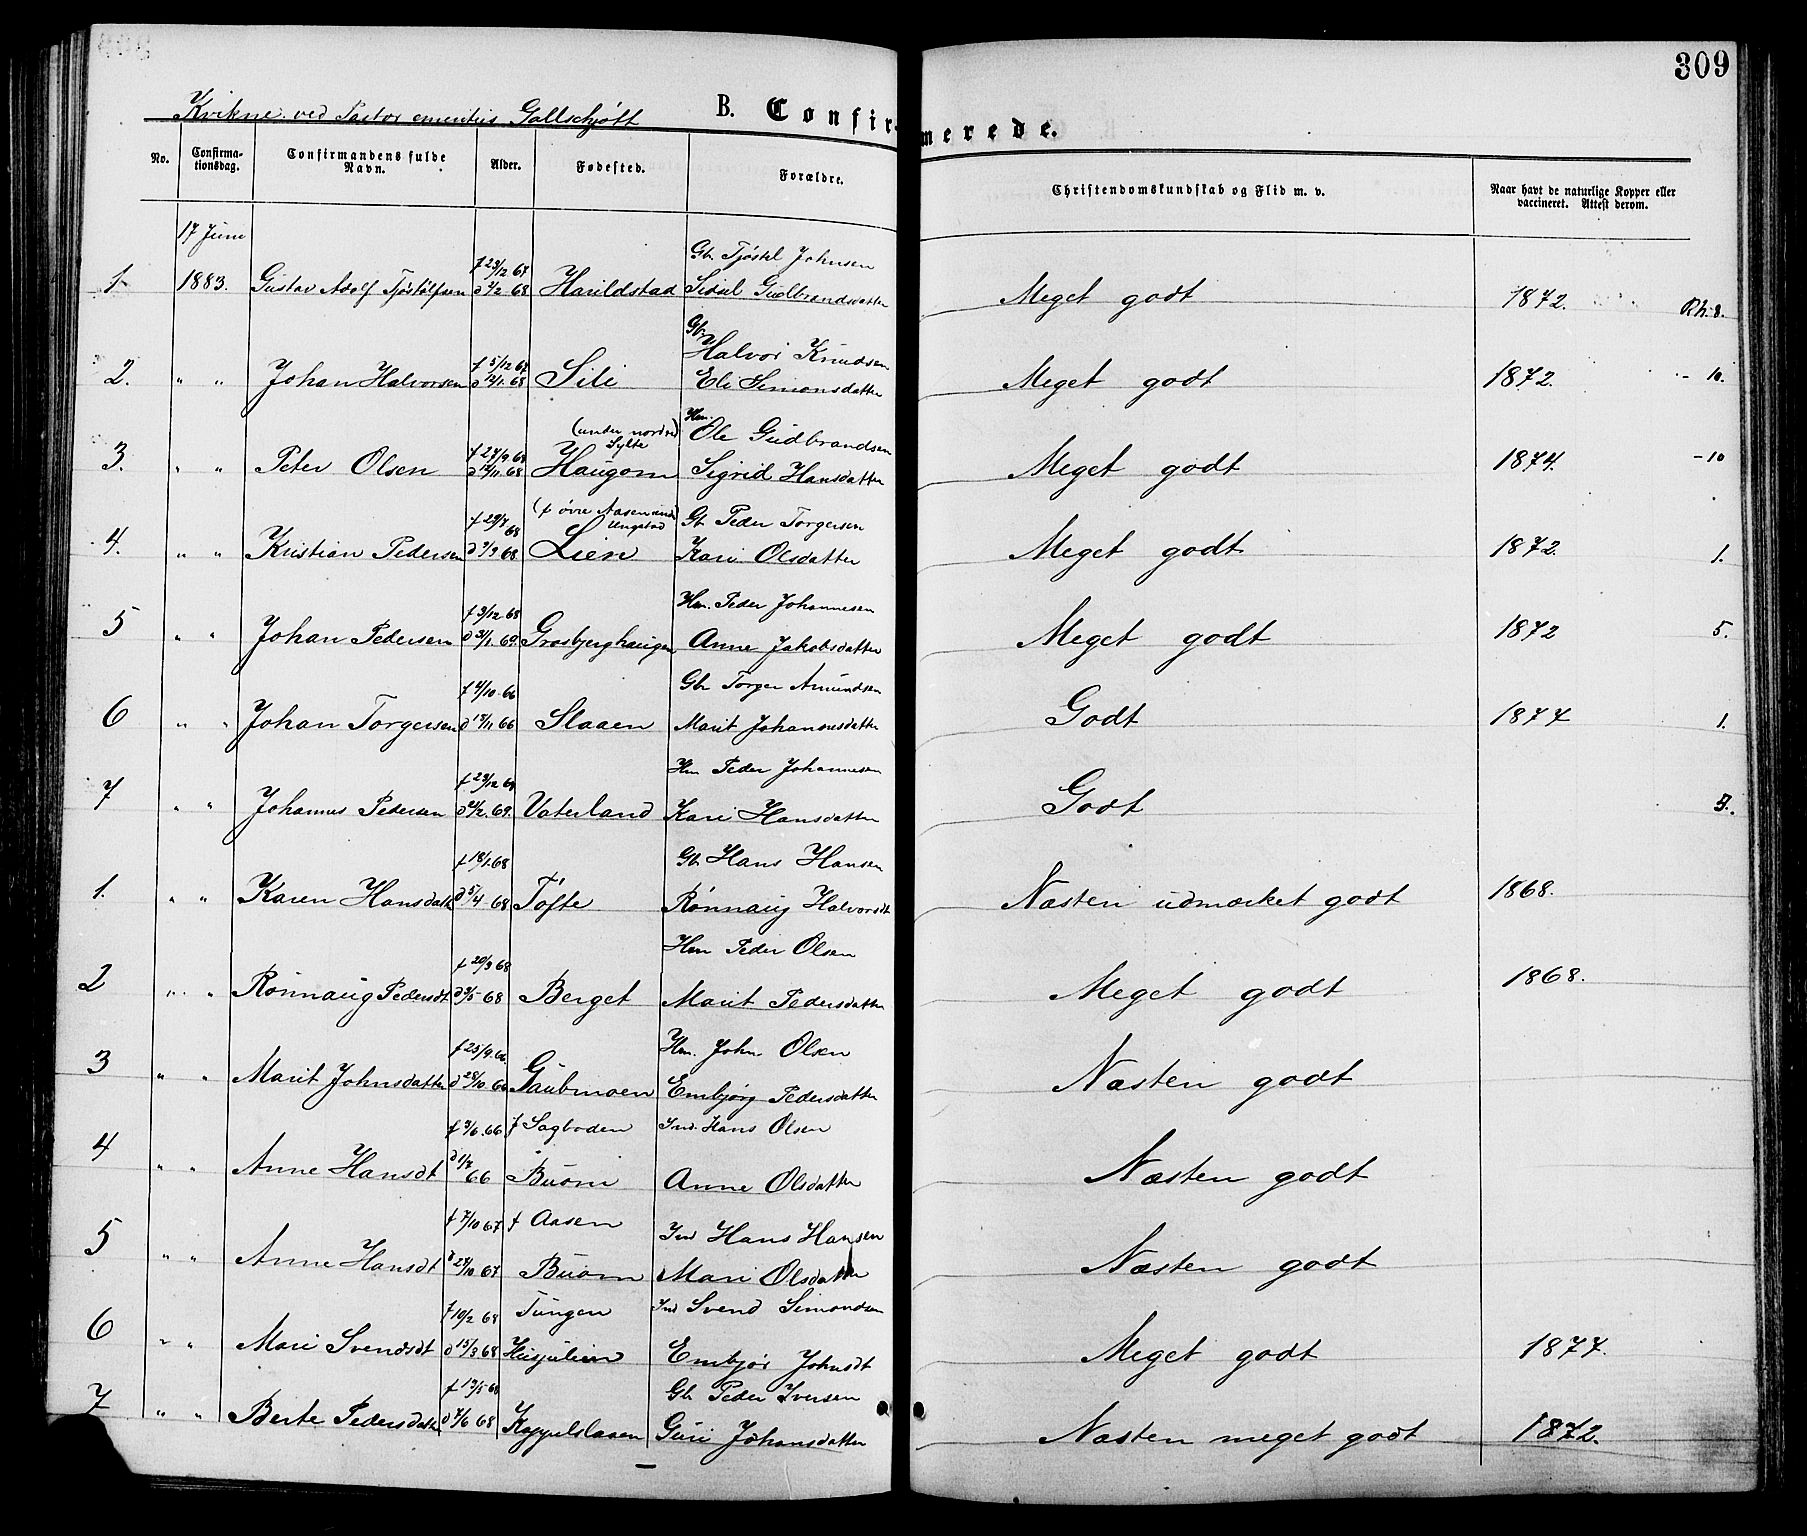 309
Kvikne ved Pastor emeritus Gallschjött
B. Confirmerede.
No. Confirmationsdag. Confirmandens fulde Navn. Alder. Fødested. Forældre. Christendomskundskab og Flid m. v. Naar havt de naturlige Kopper eller vaccineret. Attest derom.
17 Juni
f 23/12 67 Gb. Tjöstel Johnsen
1 1883. Gustav Adolf Tjöstölfsen d 2/2 68 Harildstad Sidsel Gudbrandsdatter Meget godt 1872. Rh. 8.
f 5/12 67 Gb. Halvor Knudsen
2. " " Johan Halvorsen d 12/1 68 Sili Eli Simonsdatter Meget godt 1872. - 10.
(under nordre Sylte Hm. Ole Gudbrandsen
3. " " Peter Olsen f 27/9 68 d 12/11 68 Haugom Sigrid Hansdatter Meget godt 1874. - 10
f 29/7 68 (f øvre Aasen under Ungstad Gb Peder Torgersen
4. " " Kristian Pedersen d 9/9 68 Lien Kari Olsdatter Meget godt 1872. 1.
f 3/12 68 Hm. Peder Johannesen
5 " " Johan Pedersen d 31/1. 69. Grosbjerghaugen Anne Jakobsdatter Meget godt 1872 5.
f 4/10 66 Gb Torger Amundsen
6 " " Johan Torgersen d 17/11 66 Slaaen Marit Johannesdatter Godt 1877 1.
Hm Peder Johannesen
7 " " Johannes Pedersen d 2/2. 69. Vaterland Kari Hansdatter Godt
f 18/1. 68 Gb. Hans Hansen
1. " " Karen Hansdatter d 5/4 68 Töfte Rønnaug Halvorsdt Næsten udmærket godt 1868.
f 20/3 68 Hm Peder Olsen
2 " " Rønnaug Pedersdt d 3/5 68 Berget Marit Pedersdatter Meget godt 1868.
f 25/9. 66. Hm. John Olsen
3 " " Marit Johnsdatter d 28/10 66 Gaubmoen Embjørg Pedersdatter Næsten godt
f 3/6. 66 f Sagboden Ind. Hans Olsen
4 " " Anne Hansdt d 1/7 66 Buom Anne Olsdatter Næsten godt
f 7/10 67 f Aasen Ind Hans Hansen
5 " " Anne Hansdt d 27/10 67 Buom Mari Olsdatter Næsten godt
f 10/2 68 Tungen Ind Svend Simondsen
6 " " Mari Svendsdt d 15/3 68 Husjulien Embjør Johnsdt Meget godt 1877.
Gb Peder Iversen
7 " " Berte Pedersdatter d 7/6 68 Kappelslaaen Guri Johansdatter Næsten meget godt 1872.